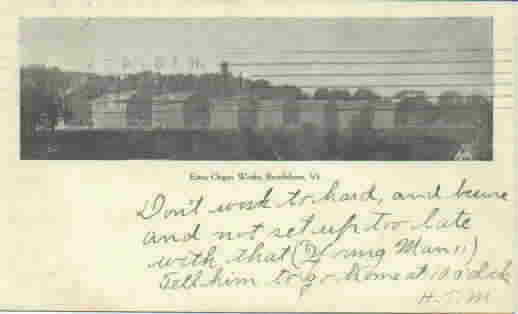 Estey Organ Works, Brattleboro, Vt.
Don't work to hard, and be sure
and not set up too late
with that (Young Man")
Tell him to go home at 10 o'clock
H. T. M